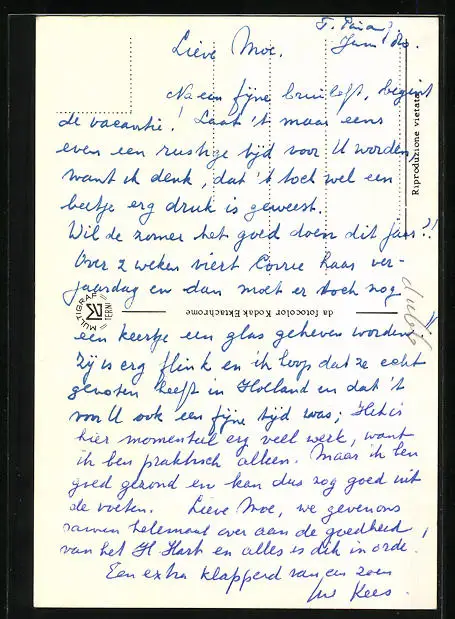 Juni '80.
Lieve Moe.
Na een fijne bruiloft, begint
de vacantie! Laat 't maar eens
even een rustige tijd voor U worden
want ik denk, dat 't toch wel een
beetje erg druk is geweest.
Wil de zomer het goed doen dit jaar?!
Over 2 weken viert Corrie haar ver-
jaardag en dan moet er toch nog
een keertje een glas geheven worden
Zij is erg flink en ik hoop dat ze echt
genoten heeft in Holland en dat 't
voor U ook een fijne tijd was; Het is
hier momenteel erg veel werk, want
ik ben praktisch alleen. Maar ik ben
goed gezond en kan dus nog goed uit
de voeten. Lieve Moe, we geven ons
samen helemaal over aan de goedheid,
van het H. Hart en alles is dik in orde.
Een extra klapperd van een zoen
Uw Kees.
Riproduzione vietata
da fotocolor Kodak Ektachrome
MULTIGRAF
TERNI